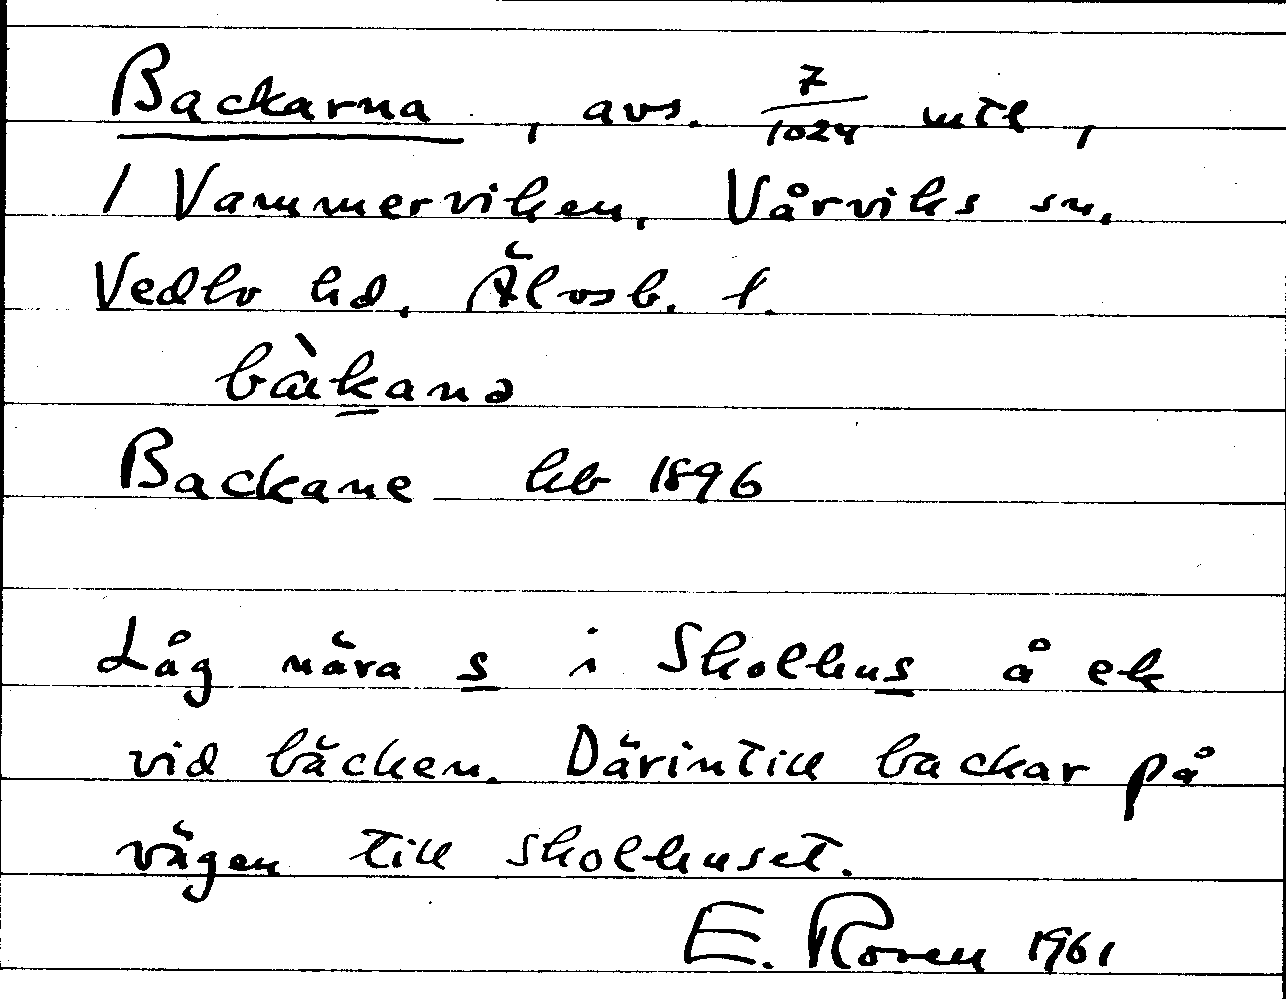 Backarna, avs. 7/1024 mtl,
1 Vammerviken, Vårviks sn.
Vedbo hd, Älvsb. l.
bàkanə
Backane hb 1896
Låg nära s i Skolhus å ek
vid bäcken. Därintill backar på
vägen till skolhuset.
E. Roven 1961